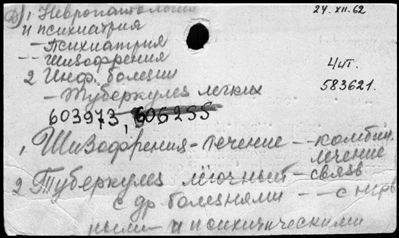 1 Невропатология
24.XII.62
и психиатрия
– Психиатрия
– Шизофрения
2 Инф. болезни
Чит.
– Туберкулез легких
583621.
603973, 606255
1, Шизофрения – течение – – комбин.
лечение
2 Туберкулез лёгочный – связь
с др болезнями – – с нерв
ными и психическими